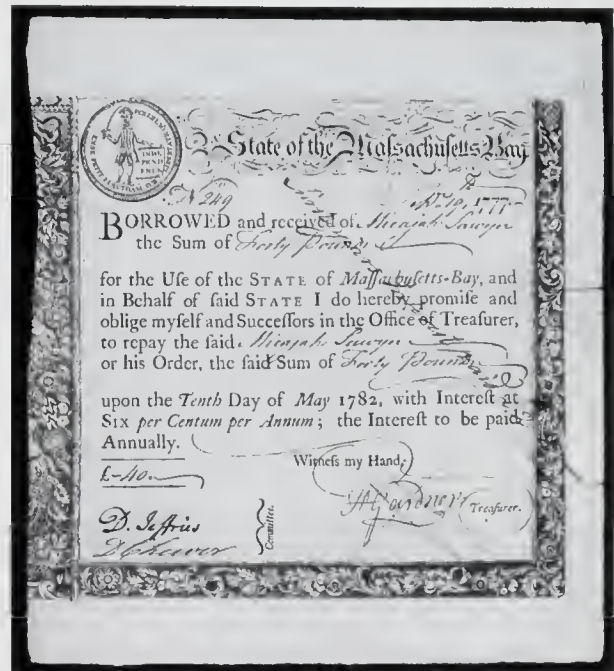 State of the Massachusetts-Bay
No 249 19, 1777
BORROWED and received of Micajah Sawyer
the Sum of Forty Pounds
for the Uſe of the STATE of Maſſachuſetts-Bay, and
in Behalf of ſaid STATE I do hereby promiſe and
oblige myſelf and Succeſſors in the Office of Treaſurer,
to repay the ſaid Micajah Sawyer
or his Order, the ſaid Sum of Forty Pounds
upon the Tenth Day of May 1782, with Intereſt at
SIX per Centum per Annum; the Intereſt to be paid
Annually.
Witneſs my Hand,
£-40
H Gardner (Treaſurer.)
D. Jeffries
D Cheever
Committee.
INDE
PEND
ENCE